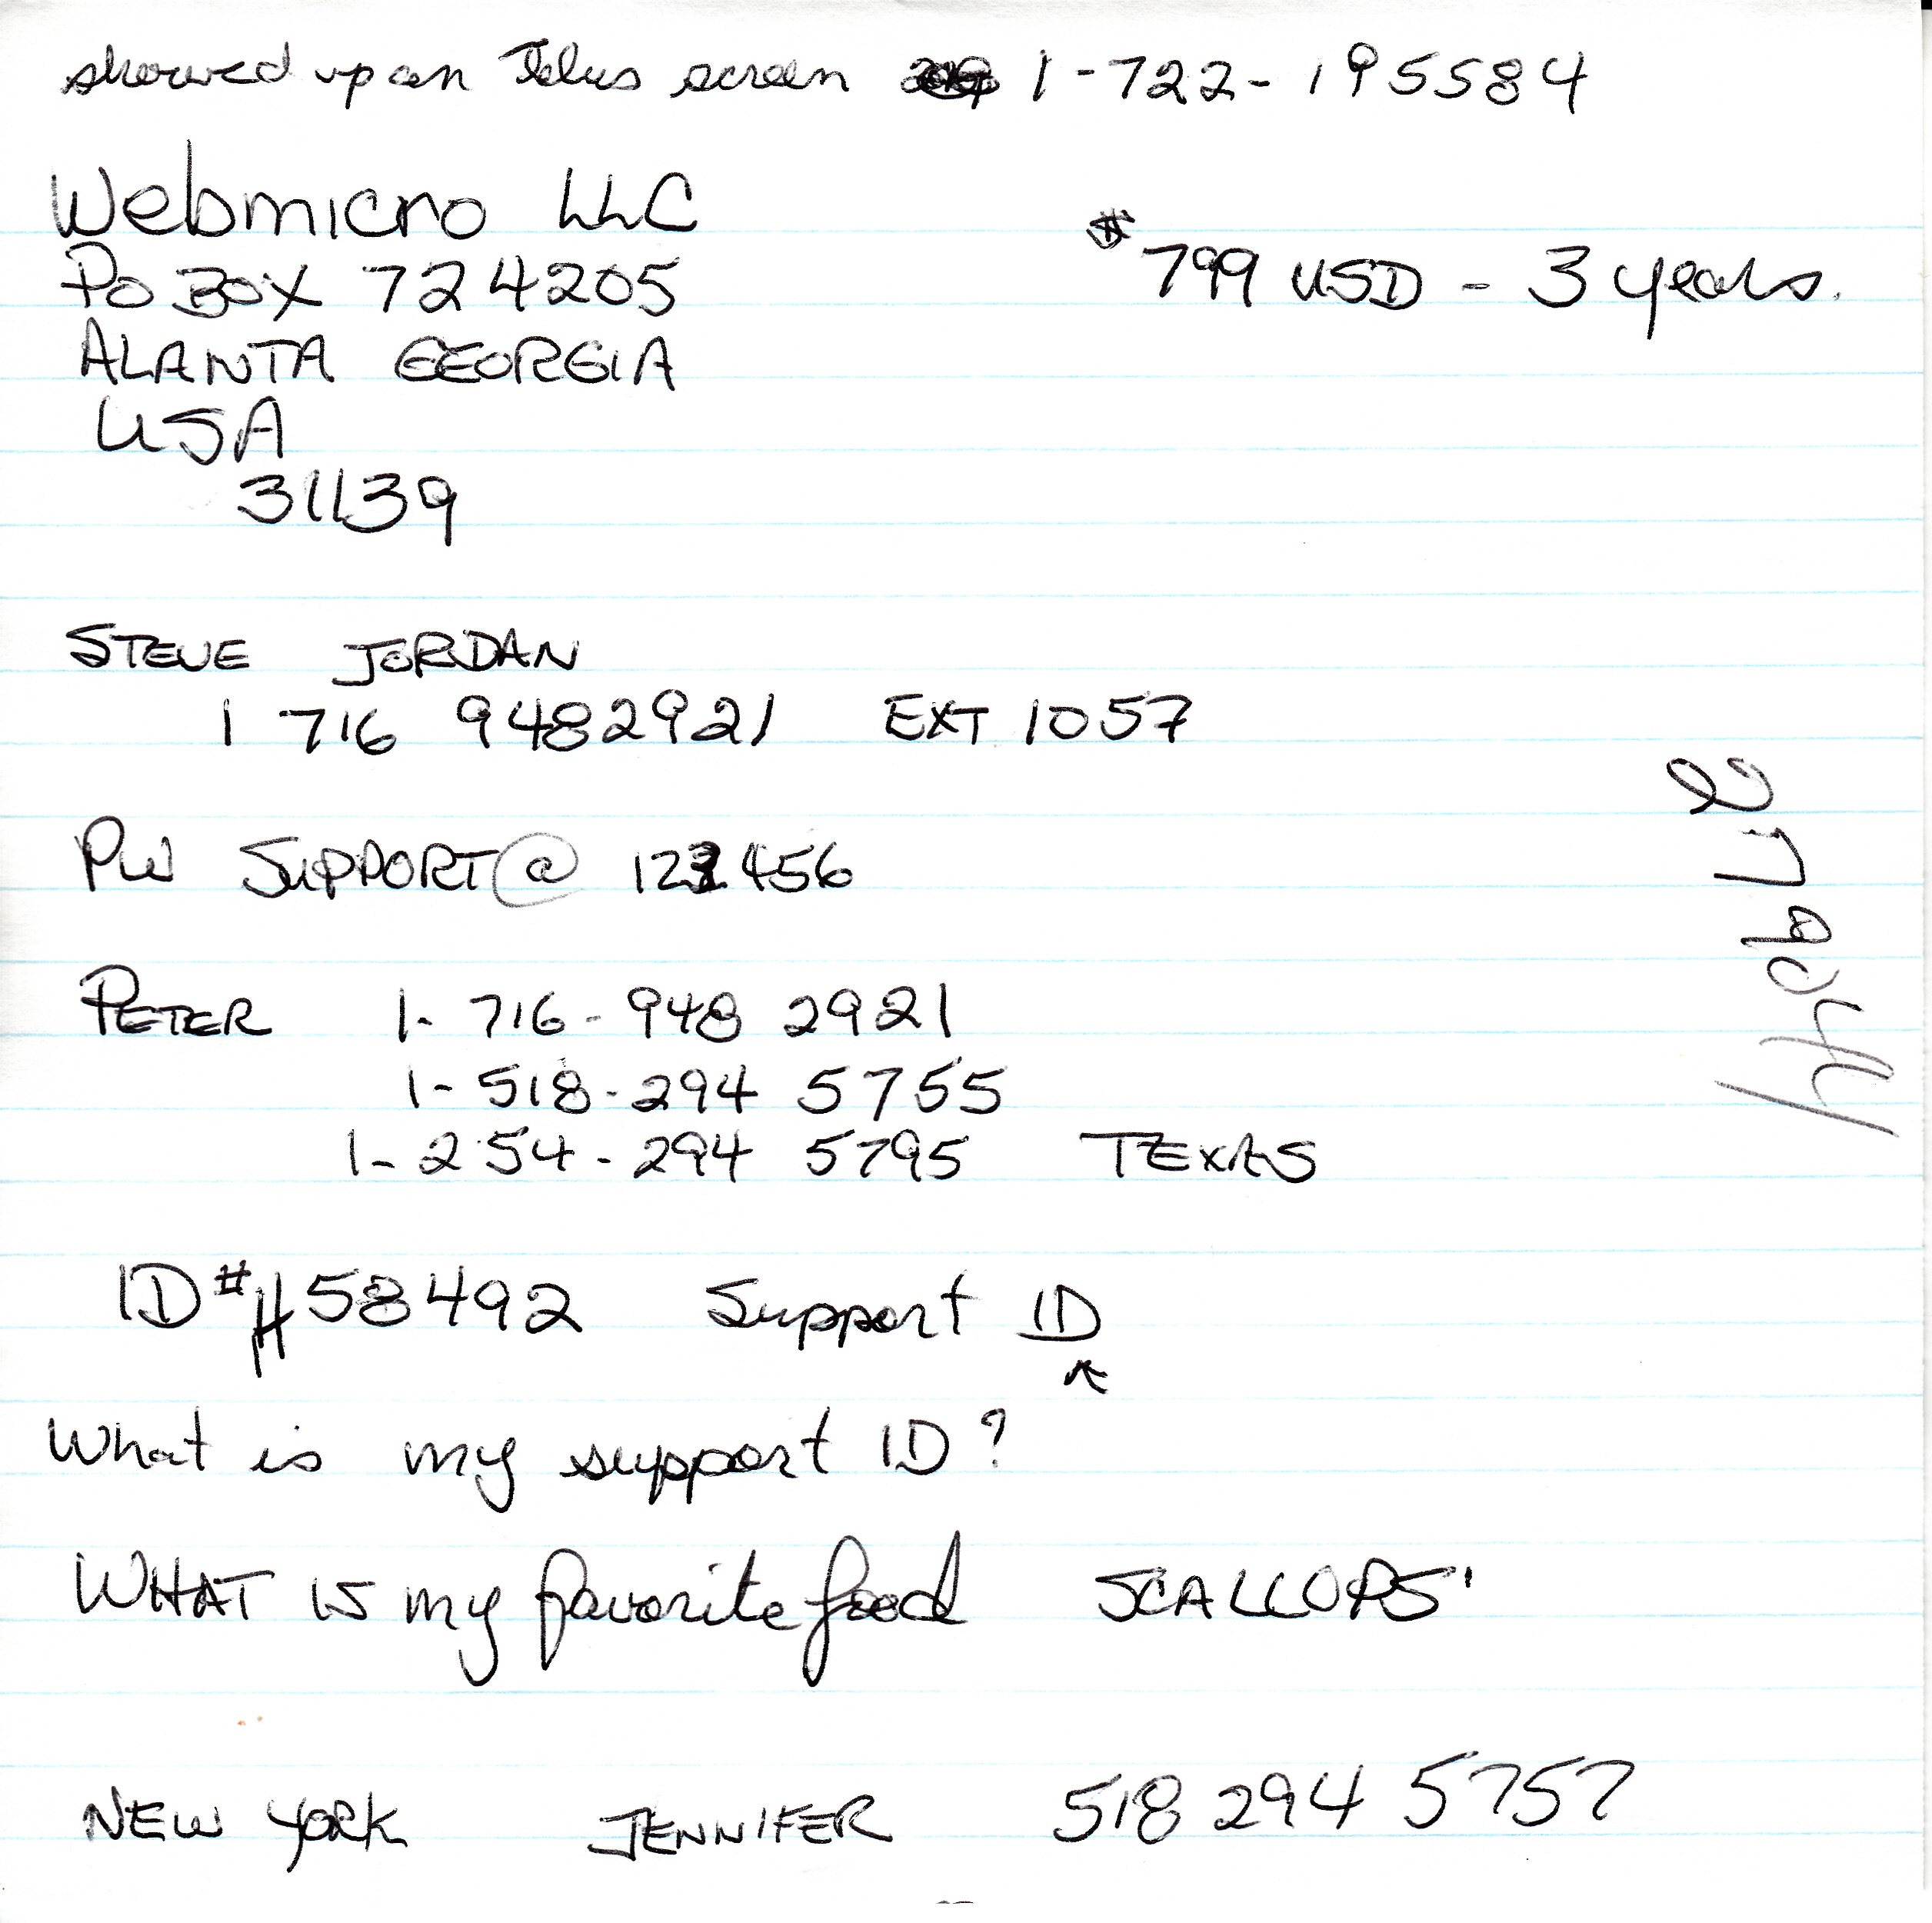 showed up on Telus screen 1-722-195584
Webmicro LLC
$799 USD - 3 years.
PO BOX 724205
ALANTA GEORGIA
USA
31139
STEVE JORDAN
1 716 9482921 EXT 1057
PW SUPPORT@ 123456
PETER 1-716-948 2921
1-518-294 5755
1-254-294 5795 TEXAS
ID # H58492 Support ID
What is my support ID?
WHAT IS my favorite food SCALLOPS
NEW YORK JENNIFER 518 294 5757